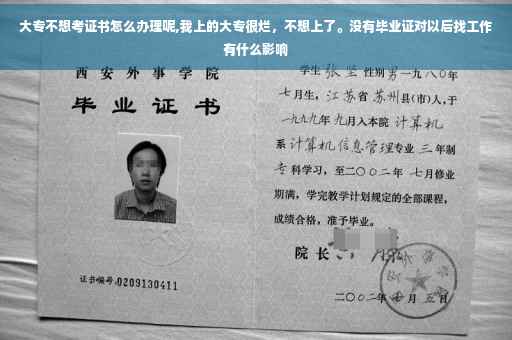 大专不想考证书怎么办理呢,我上的大专很烂，不想上了。没有毕业证对以后找工作
有什么影响
西安外事学院
毕业证书
证书编号:0209130411
学生 张坚 性别男一九八〇年
七月生，江苏省苏州县(市)人,于
一九九九年九月入本院 计算机
系计算机信息管理专业 三 年制
专科学习，至二〇〇二年 七月修业
期满，学完教学计划规定的全部课程，
成绩合格，准予毕业。
院长
二〇〇二年 七月 五日